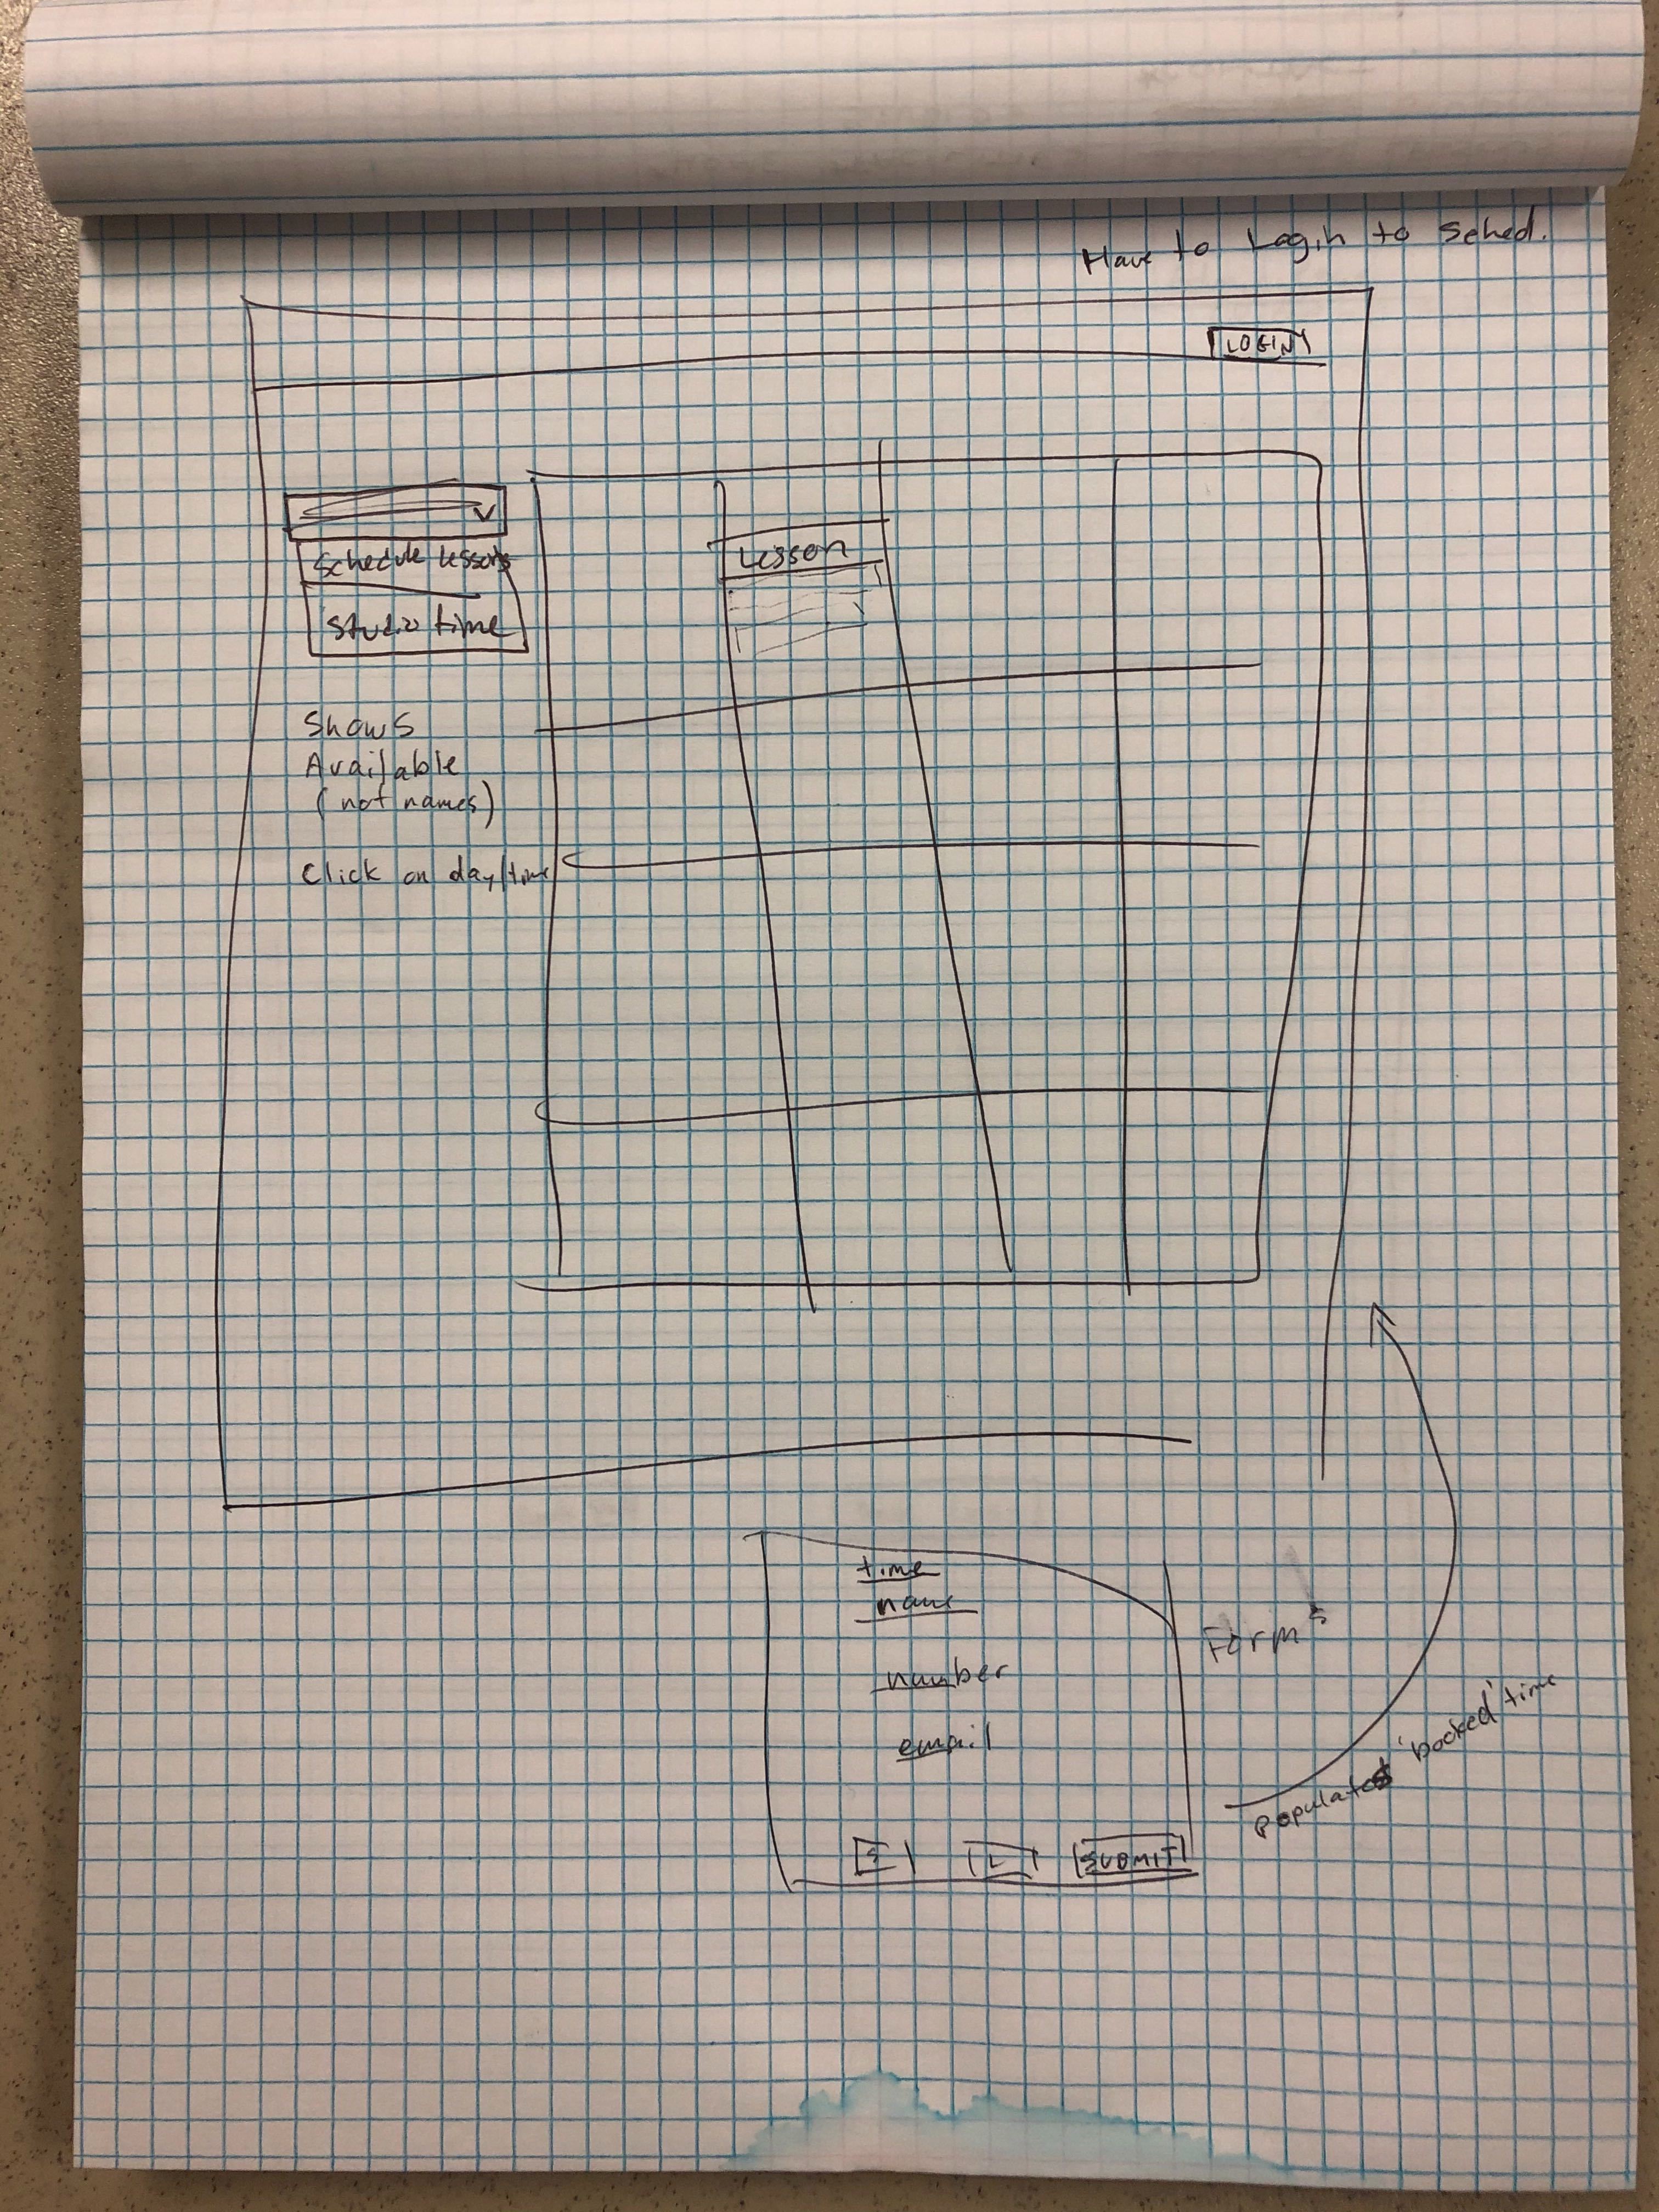 Have to Login to Sched.
LOGIN
Schedule lessons
Studio time
Lesson
Shows
Available
(not names)
Click on day/time
time
name
number
email
Form
SUBMIT
Populates 'booked' time